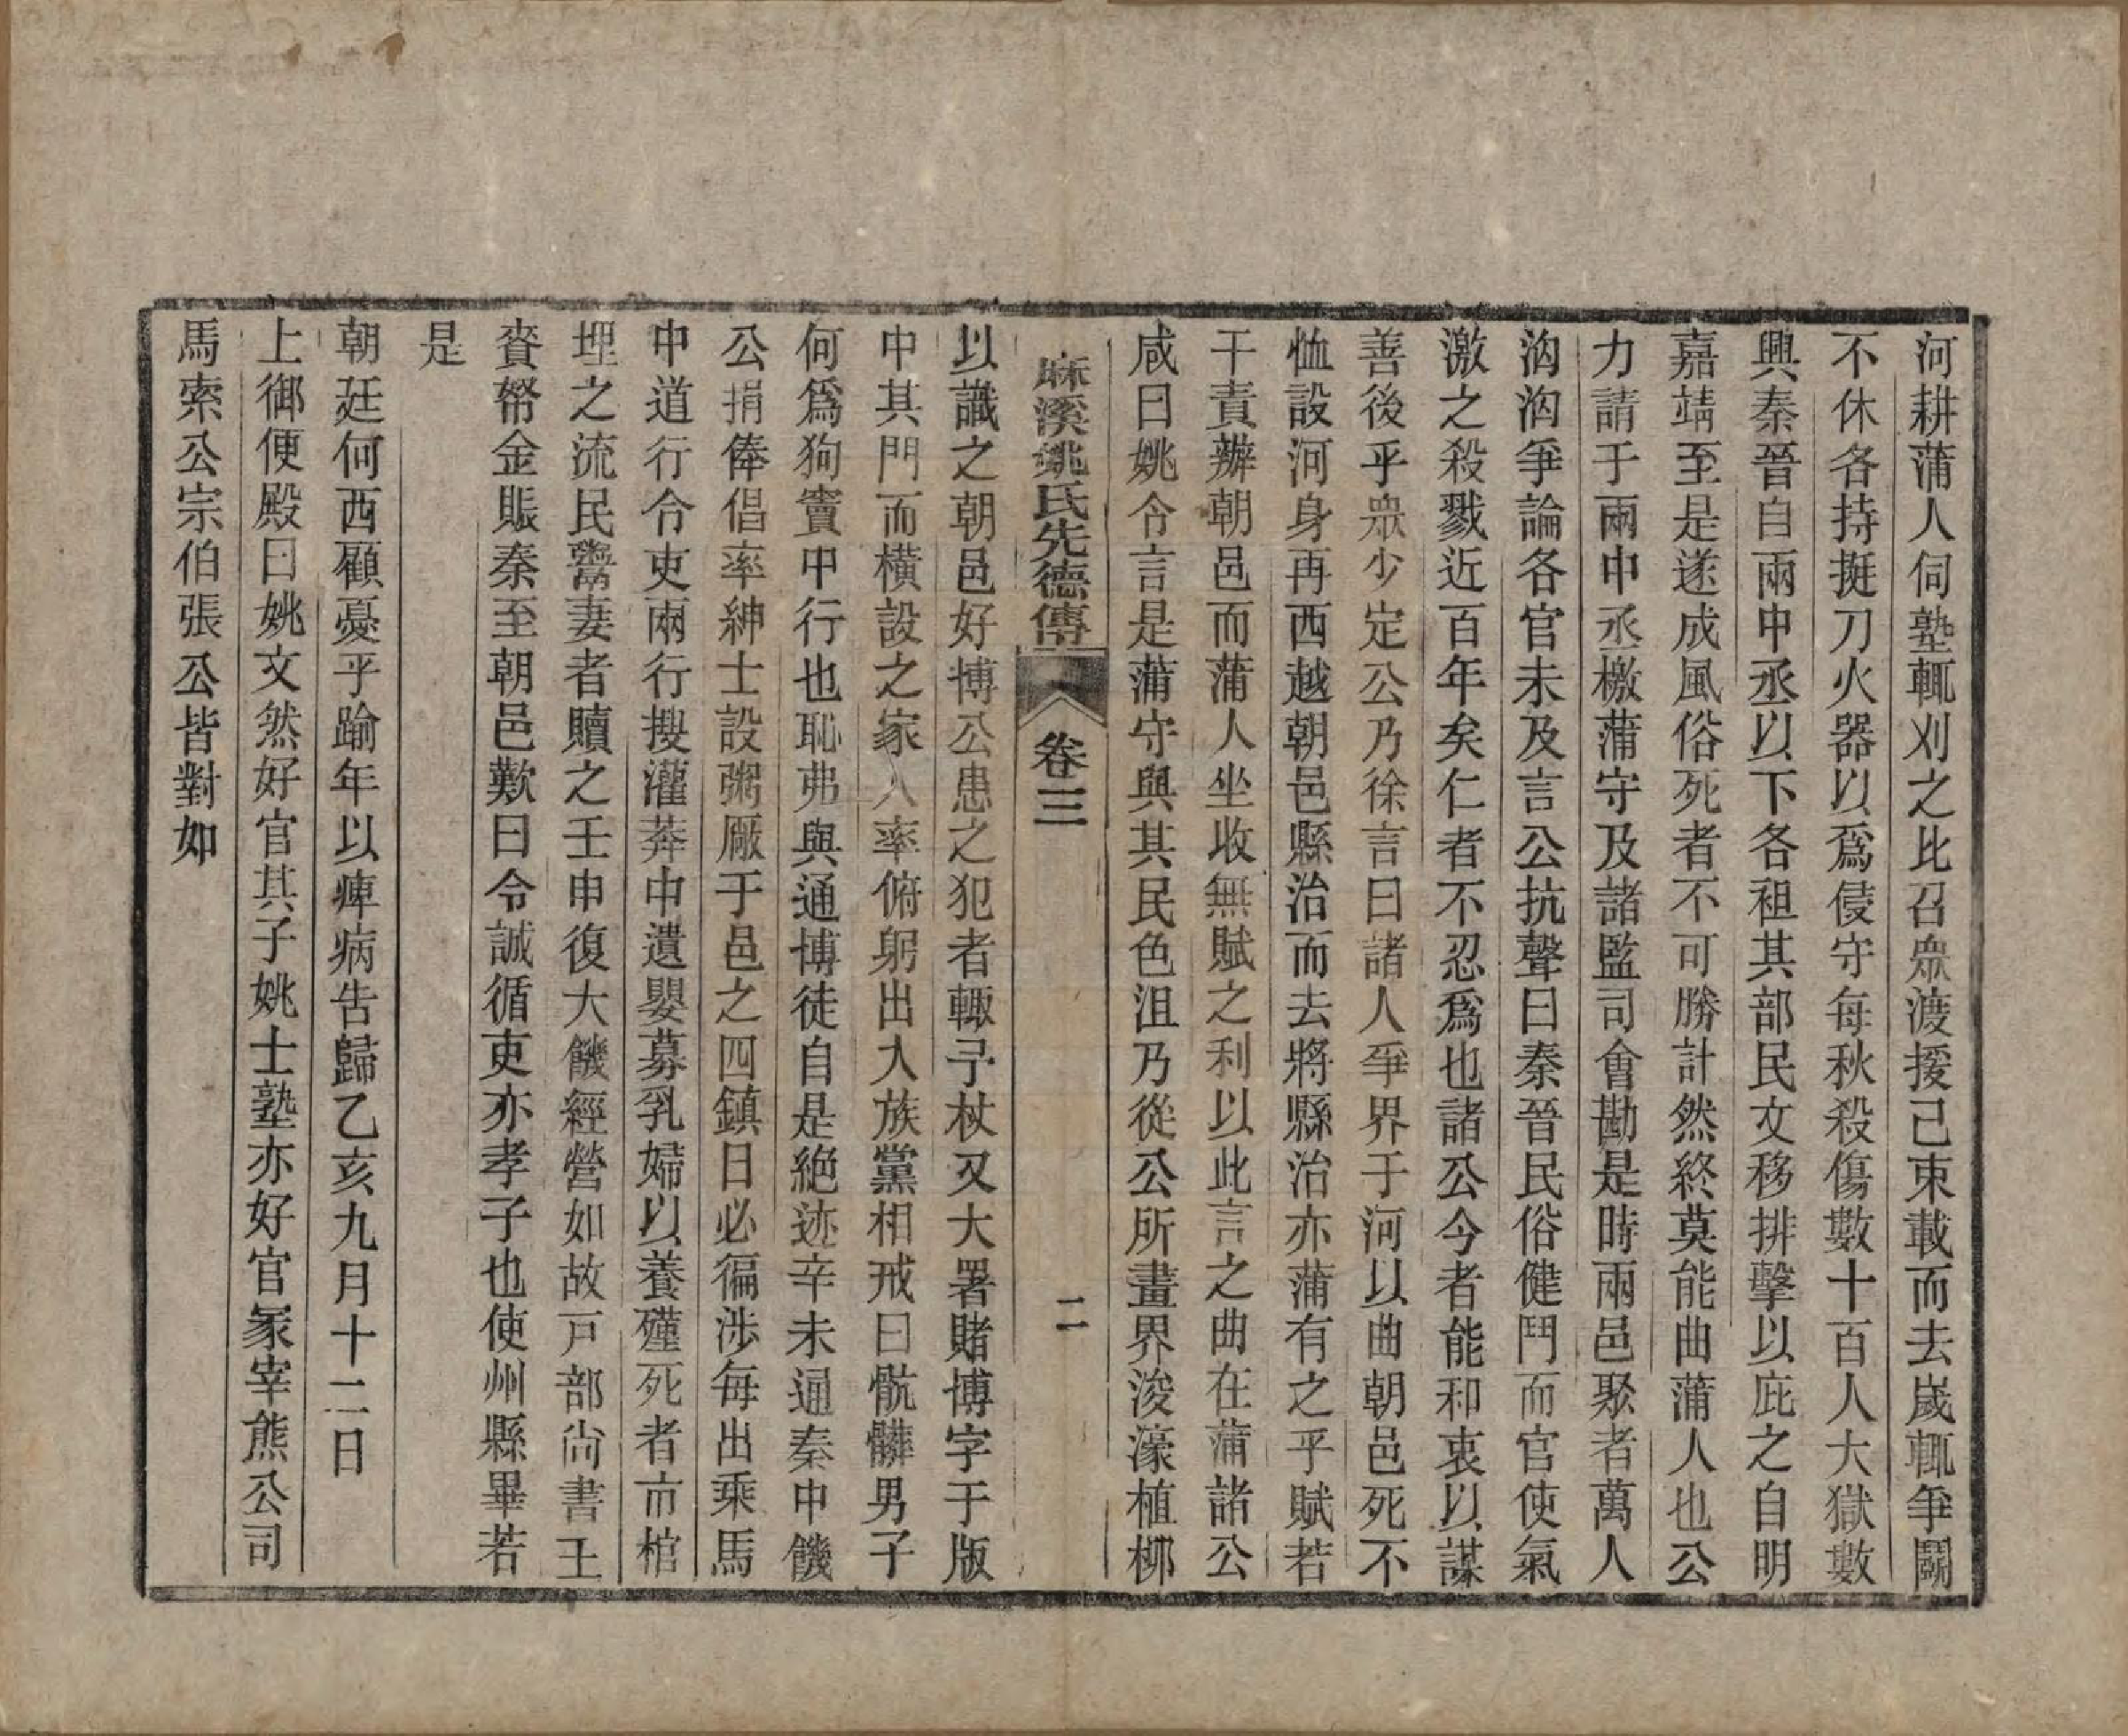 河耕蒲人伺塾輒刈之比召衆渡援已束載而去歲輒爭鬭
不休各持挺刀火器以爲侵守每秋殺傷數十百人大獄數
興秦晉自兩中丞以下各袒其部民文移排擊以庇之自明
嘉靖至是遂成風俗死者不可勝計然終莫能曲蒲人也公
力請于兩中丞檄蒲守及諸監司會勘是時兩邑聚者萬人
洶洶爭論各官未及言公抗聲曰秦晉民俗健鬥而官使氣
激之殺戮近百年矣仁者不忍爲也諸公今者能和衷以謀
善後乎衆少定公乃徐言曰諸人爭界于河以曲朝邑死不
恤設河身再西越朝邑縣治而去將縣治亦蒲有之乎賦若
干責辦朝邑而蒲人坐收無賦之利以此言之曲在蒲諸公
咸曰姚令言是蒲守與其民色沮乃從公所畫界浚濠植柳
麻溪姚氏先德傳 卷三 二
以識之朝邑好博公患之犯者輒予杖又大署賭博字于版
中其門而橫設之家人率俯躬出入族黨相戒曰骯髒男子
何爲狗竇中行也恥弗與通博徒自是絕迹辛未通秦中饑
公捐俸倡率紳士設粥厰于邑之四鎮日必徧涉每出乘馬
中道行令吏兩行搜灌莽中遺嬰募乳婦以養殣死者市棺
埋之流民鬻妻者贖之壬申復大饑經營如故戸部尚書王
賫帑金賑秦至朝邑歎曰令誠循吏亦孝子也使州縣畢若
是
朝廷何西顧憂乎踰年以痺病告歸乙亥九月十二日
上御便殿曰姚文然好官其子姚士塾亦好官冢宰熊公司
馬索公宗伯張公皆對如